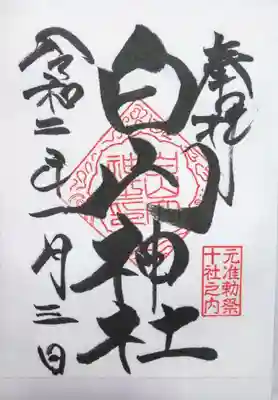 奉拝
白山神社
元准勅祭
十社之内
令和二年一月三日